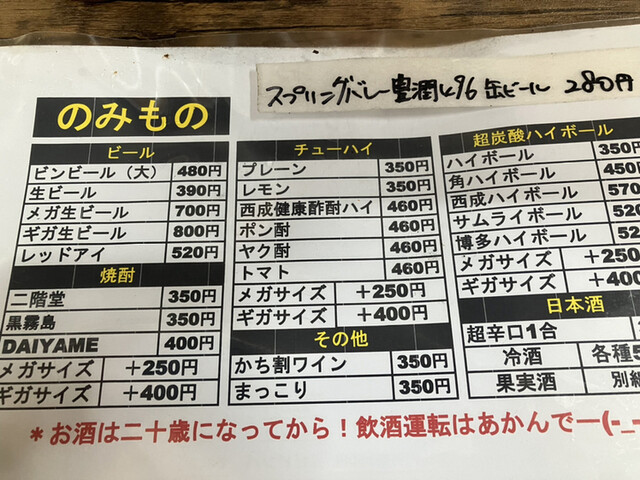 スプリングバレー豊潤496 缶ビール 280円
のみもの
ビール
ビンビール（大） 480円
生ビール 390円
メガ生ビール 700円
ギガ生ビール 800円
レッドアイ 520円
焼酎
二階堂 350円
黒霧島 350円
DAIYAME 400円
メガサイズ +250円
ギガサイズ +400円
チューハイ
プレーン 350円
レモン 350円
西成健康酢酎ハイ 460円
ポン酎 460円
ヤク酎 460円
トマト 460円
メガサイズ +250円
ギガサイズ +400円
その他
かち割ワイン 350円
まっこり 350円
超炭酸ハイボール
ハイボール 350円
角ハイボール 450
西成ハイボール 570
サムライボール 52
博多ハイボール 52
メガサイズ +250
ギガサイズ +400
日本酒
超辛口1合
冷酒 各種5
果実酒 別紙
＊お酒は二十歳になってから！飲酒運転はあかんでー(-_-